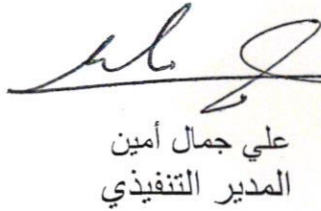 علي جمال أمين
المدير التنفيذي